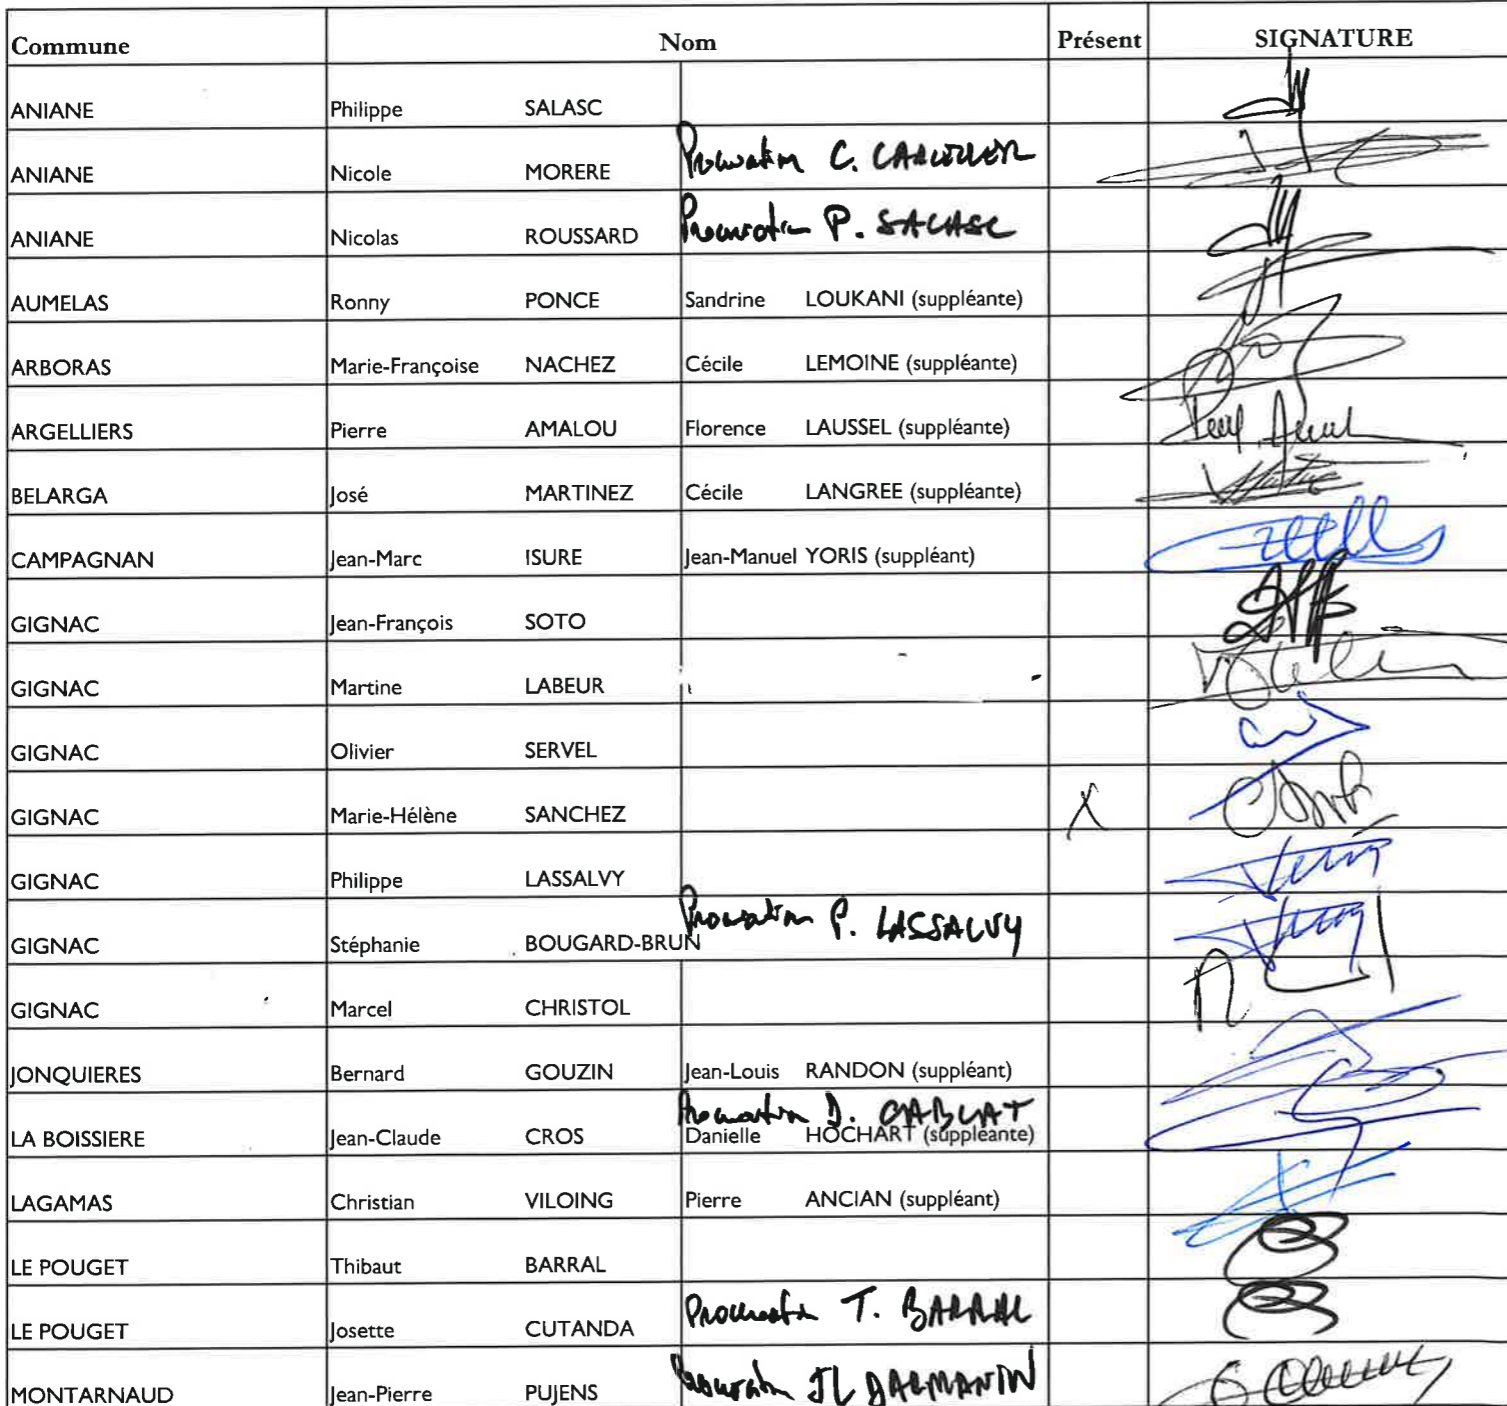 Commune Nom Présent SIGNATURE
ANIANE Philippe SALASC
ANIANE Nicole MORERE Procuration C.
ANIANE Nicolas ROUSSARD Procuration P. SALASC
AUMELAS Ronny PONCE Sandrine LOUKANI (suppléante)
ARBORAS Marie-Françoise NACHEZ Cécile LEMOINE (suppléante)
ARGELLIERS Pierre AMALOU Florence LAUSSEL (suppléante)
BELARGA José MARTINEZ Cécile LANGREE (suppléante)
CAMPAGNAN Jean-Marc ISURE Jean-Manuel YORIS (suppléant)
GIGNAC Jean-François SOTO
GIGNAC Martine LABEUR
GIGNAC Olivier SERVEL
GIGNAC Marie-Hélène SANCHEZ X
GIGNAC Philippe LASSALVY
GIGNAC Stéphanie BOUGARD-BRUN Procuration P. LASSALVY
GIGNAC Marcel CHRISTOL
JONQUIERES Bernard GOUZIN Jean-Louis RANDON (suppléant)
Procuration D. CABLAT
LA BOISSIERE Jean-Claude CROS Danielle HOCHART (suppléante)
LAGAMAS Christian VILOING Pierre ANCIAN (suppléant)
LE POUGET Thibaut BARRAL
LE POUGET Josette CUTANDA Procuration T. BARRAL
MONTARNAUD Jean-Pierre PUJENS Procuration JL DARMANIN